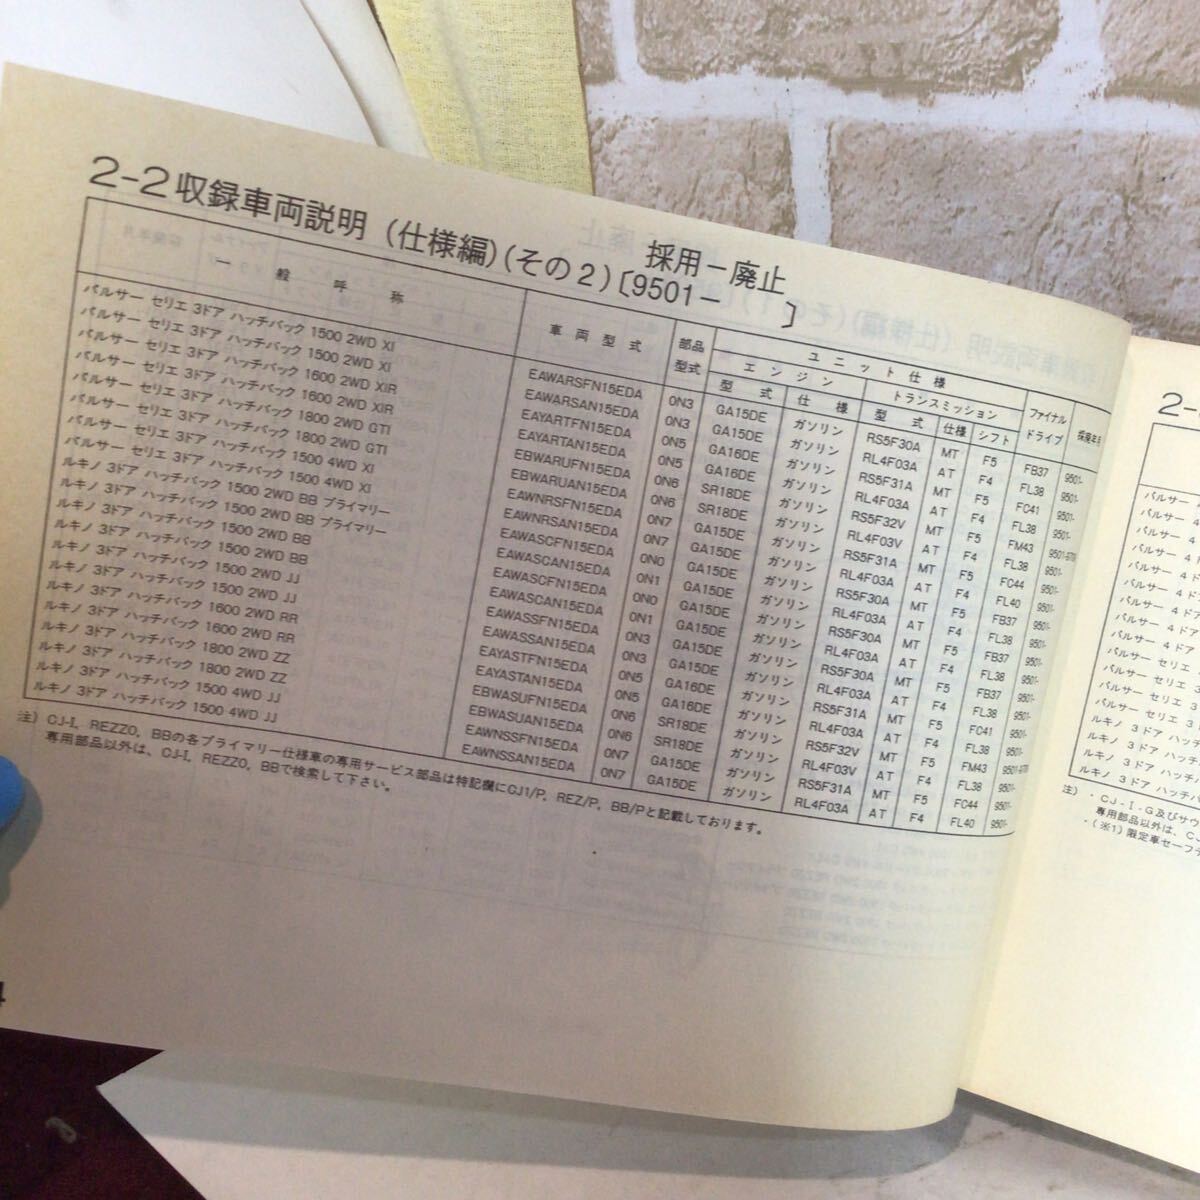 2-2収録車両説明 (仕様編)(その2)〔9501- 〕
採用-廃止
一般呼称 車両型式 部品型式 ユニット仕様
エンジン トランスミッション ファイナルドライブ 採廃年月
型式 仕様 型式 仕様 シフト
パルサー セリエ 3ドア ハッチバック 1500 2WD XI EAWARSFN15EDA 0N3 GA15DE ガソリン RS5F30A MT F5 FB37 9501-
パルサー セリエ 3ドア ハッチバック 1500 2WD XI EAWARSAN15EDA 0N3 GA15DE ガソリン RL4F03A AT F4 FL38 9501-
パルサー セリエ 3ドア ハッチバック 1600 2WD XIR EAYARTFN15EDA 0N5 GA16DE ガソリン RS5F31A MT F5 FC41 9501-
パルサー セリエ 3ドア ハッチバック 1600 2WD XIR EAYARTAN15EDA 0N5 GA16DE ガソリン RL4F03A AT F4 FL38 9501-
パルサー セリエ 3ドア ハッチバック 1800 2WD GTI EBWARUFN15EDA 0N6 SR18DE ガソリン RS5F32V MT F5 FM43
パルサー セリエ 3ドア ハッチバック 1800 2WD GTI EBWARUAN15EDA 0N6 SR18DE ガソリン RL4F03V AT F4 FL38 9501-
パルサー セリエ 3ドア ハッチバック 1500 4WD XI EAWNRSFN15EDA 0N7 GA15DE ガソリン RS5F31A MT F5 FC44 9501-
パルサー セリエ 3ドア ハッチバック 1500 4WD XI EAWNRSAN15EDA 0N7 GA15DE ガソリン RL4F03A AT F4 FL40 9501-
ルキノ 3ドア ハッチバック 1500 2WD BB プライマリー EAWASCFN15EDA 0N0 GA15DE ガソリン RS5F30A MT F5 FB37 9501-
ルキノ 3ドア ハッチバック 1500 2WD BB プライマリー EAWASCAN15EDA 0N1 GA15DE ガソリン RL4F03A AT F4 FL38 9501-
ルキノ 3ドア ハッチバック 1500 2WD BB EAWASCFN15EDA 0N0 GA15DE ガソリン RS5F30A MT F5 FB37 9501-
ルキノ 3ドア ハッチバック 1500 2WD BB EAWASCAN15EDA 0N1 GA15DE ガソリン RL4F03A AT F4 FL38 9501-
ルキノ 3ドア ハッチバック 1500 2WD JJ EAWASSFN15EDA 0N3 GA15DE ガソリン RS5F30A MT F5 FB37 9501-
ルキノ 3ドア ハッチバック 1500 2WD JJ EAWASSAN15EDA 0N3 GA15DE ガソリン RL4F03A AT F4 FL38 9501-
ルキノ 3ドア ハッチバック 1600 2WD RR EAYASTFN15EDA 0N5 GA16DE ガソリン RS5F31A MT F5 FC41 9501-
ルキノ 3ドア ハッチバック 1600 2WD RR EAYASTAN15EDA 0N5 GA16DE ガソリン RL4F03A AT F4 FL38 9501-
ルキノ 3ドア ハッチバック 1800 2WD ZZ EBWASUFN15EDA 0N6 SR18DE ガソリン RS5F32V MT F5 FM43
ルキノ 3ドア ハッチバック 1800 2WD ZZ EBWASUAN15EDA 0N6 SR18DE ガソリン RL4F03V AT F4 FL38 9501-
ルキノ 3ドア ハッチバック 1500 4WD JJ EAWNSSFN15EDA 0N7 GA15DE ガソリン RS5F31A MT F5 FC44 9501-
ルキノ 3ドア ハッチバック 1500 4WD JJ EAWNSSAN15EDA 0N7 GA15DE ガソリン RL4F03A AT F4 FL40 9501-
注) CJ-I, REZZO, BBの各プライマリー仕様車の専用サービス部品は特記欄にCJ1/P, REZ/P, BB/Pと記載しております。
専用部品以外は、CJ-I, REZZO, BBで検索して下さい。
4
2-
パルサー セリ
パルサー 4
パルサー 4
パルサー 4
パルサー 4ド
パルサー 4ドア
パルサー 4ドア
パルサー 4ドア
パルサー セリエ
パルサー セリエ 3
パルサー セリエ 3
ルキノ 3ドア ハッ
ルキノ 3ドア ハッ
ルキノ 3ドア ハッチ
ルキノ 3ドア ハッチバ
注) ・CJ-I-G及びサウ
専用部品以外は、CJ
・(※1) 限定車セーフテ